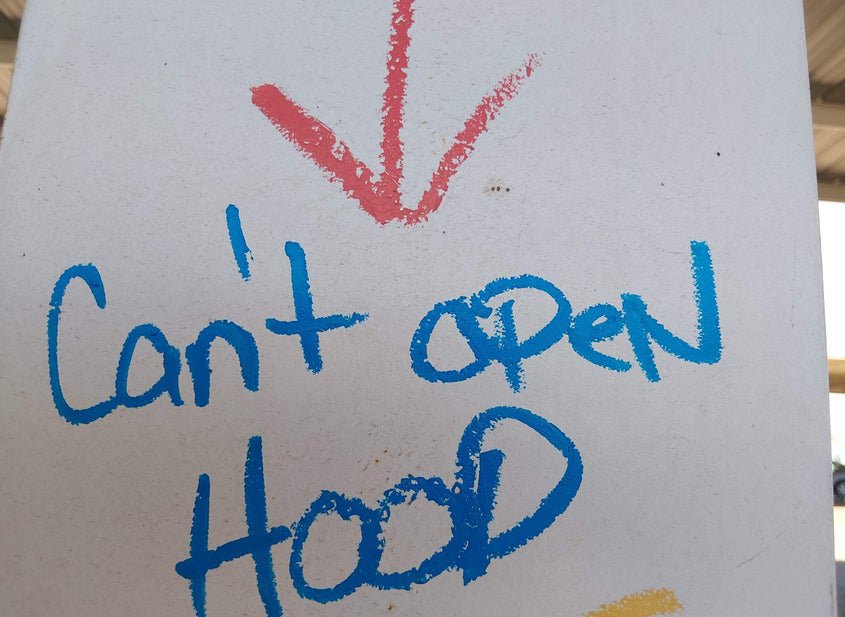 Can't open
HooD